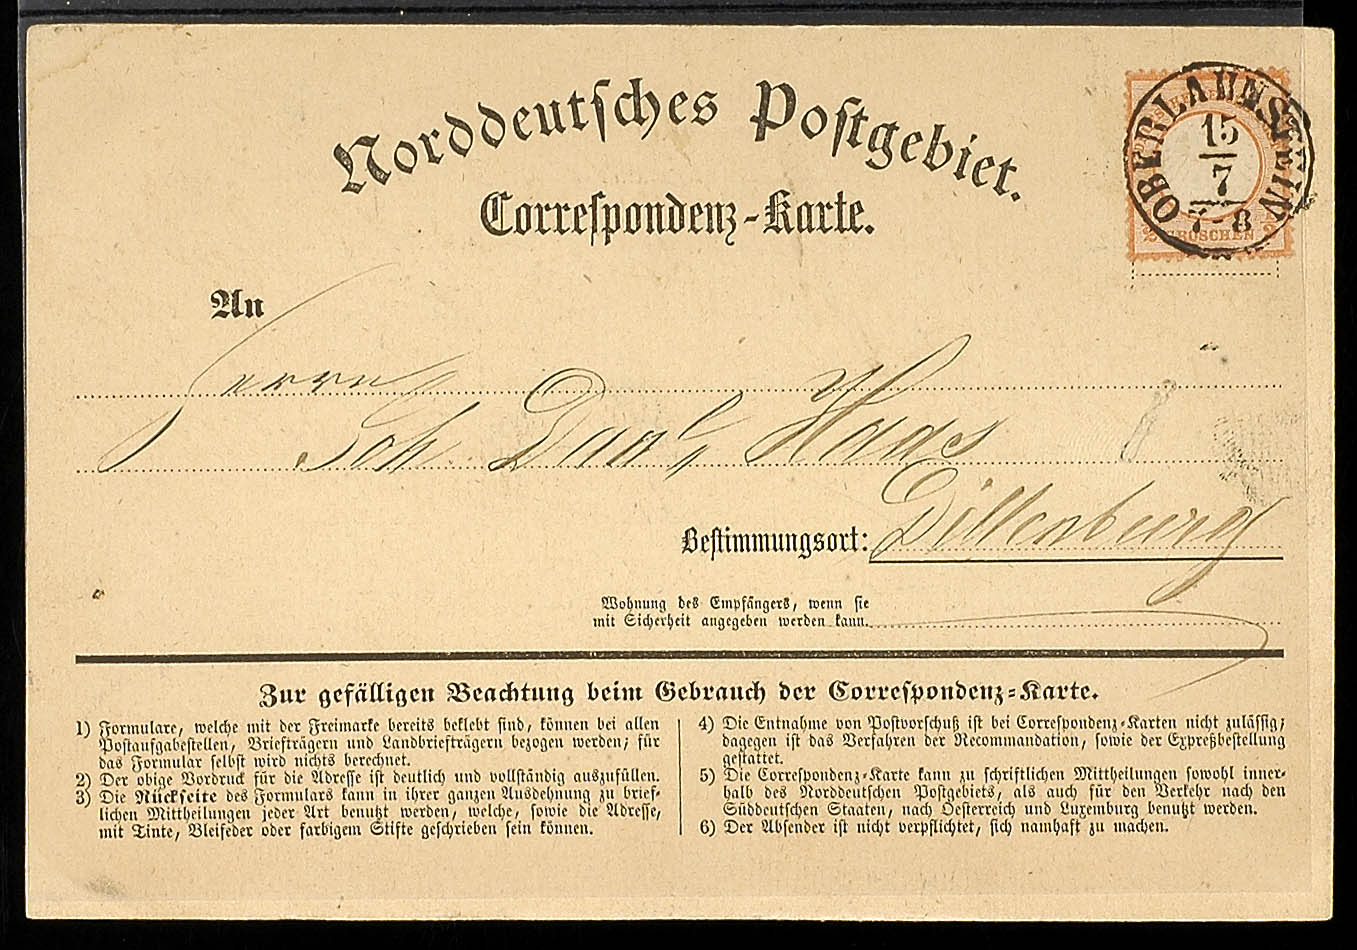 Norddeutsches Postgebiet.
Correspondenz-Karte.
OBERLAHNSTEIN
15
7
7-8
GROSCHEN
An
Herrn
Joh Danl Haas
Bestimmungsort: Dillenburg
Wohnung des Empfängers, wenn sie
mit Sicherheit angegeben werden kann.
Zur gefälligen Beachtung beim Gebrauch der Correspondenz-Karte.
1) Formulare, welche mit der Freimarke bereits beklebt sind, können bei allen
Postaufgabestellen, Briefträgern und Landbriefträgern bezogen werden; für
das Formular selbst wird nichts berechnet.
2) Der obige Vordruck für die Adresse ist deutlich und vollständig auszufüllen.
3) Die Rückseite des Formulars kann in ihrer ganzen Ausdehnung zu brief-
lichen Mittheilungen jeder Art benutzt werden, welche, sowie die Adresse,
mit Tinte, Bleifeder oder farbigem Stifte geschrieben sein können.
4) Die Entnahme von Postvorschuß ist bei Correspondenz-Karten nicht zulässig;
dagegen ist das Verfahren der Recommandation, sowie der Expreßbestellung
gestattet.
5) Die Correspondenz-Karte kann zu schriftlichen Mittheilungen sowohl inner-
halb des Norddeutschen Postgebiets, als auch für den Verkehr nach den
Süddeutschen Staaten, nach Oesterreich und Luxemburg benutzt werden.
6) Der Absender ist nicht verpflichtet, sich namhaft zu machen.